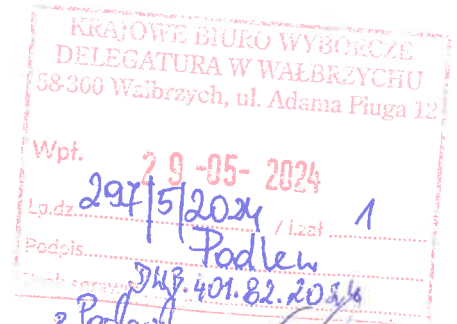 KRAJOWE BIURO WYBORCZE
DELEGATURA W WAŁBRZYCHU
58-300 Wałbrzych, ul. Adama Pługa 12
Wpł. 29-05-2024
L.p.dz. 297/5/2024 / l.zał 1
Podpis
DWB.401.82.2024